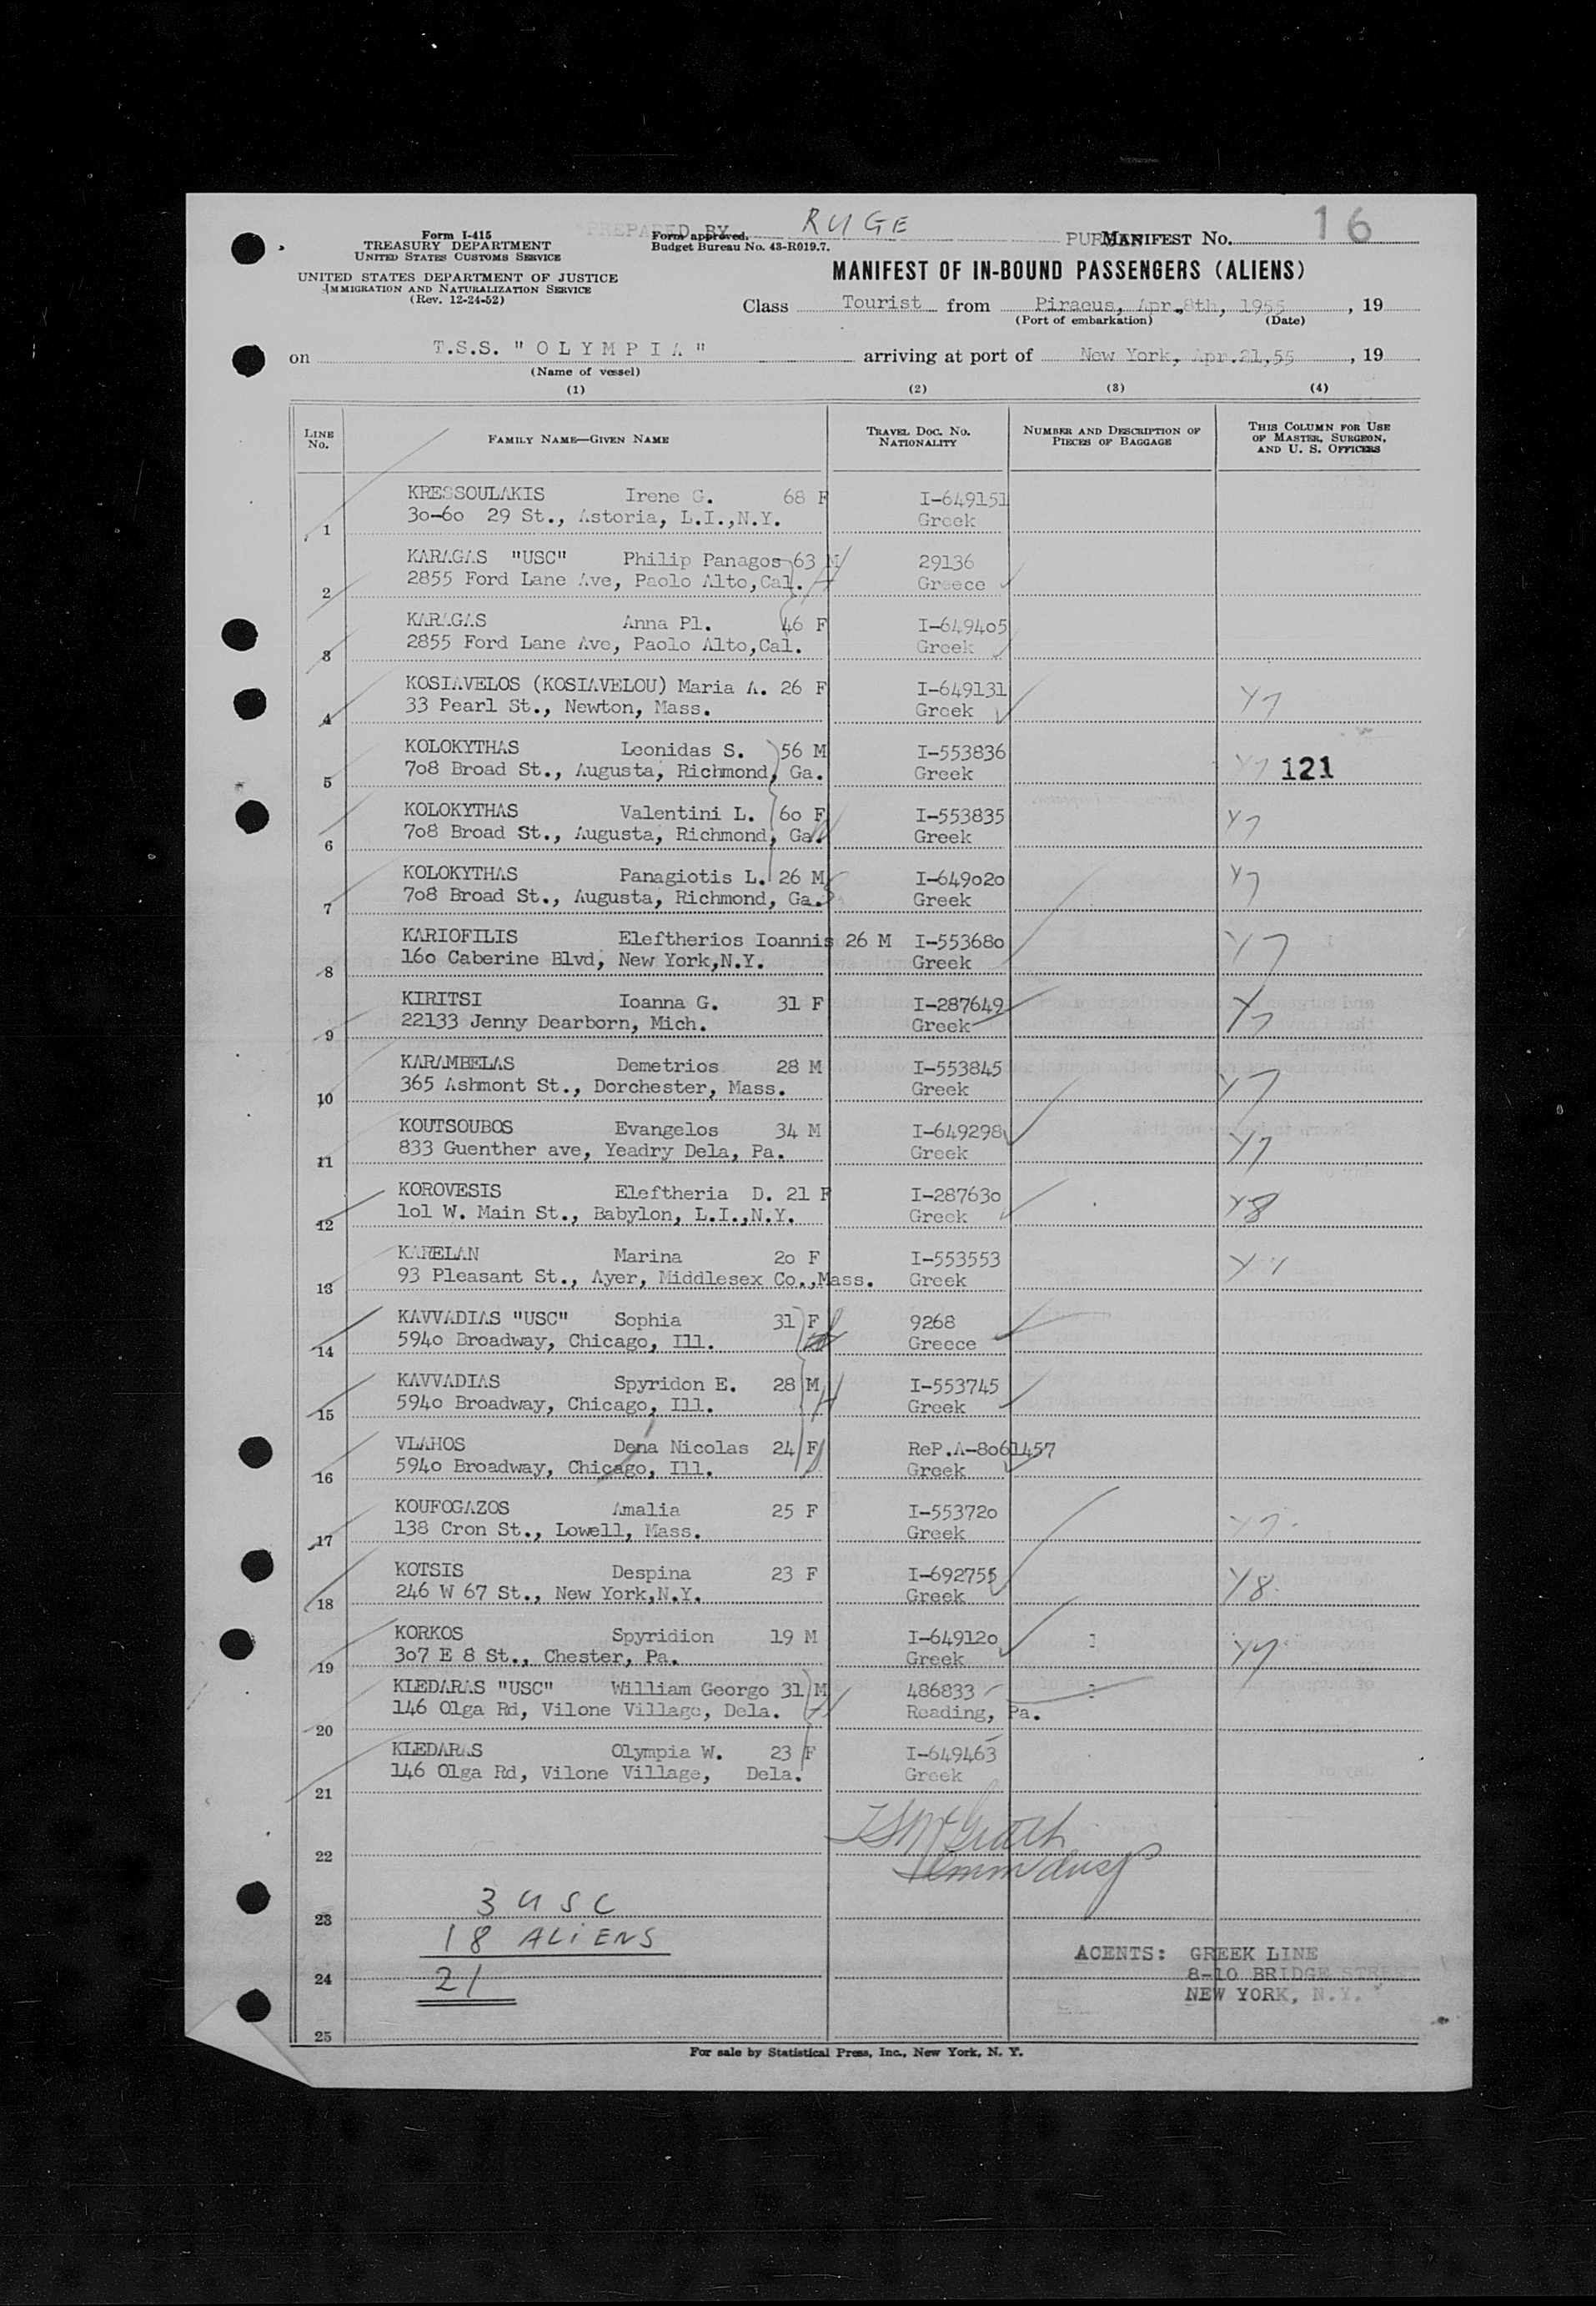 Form I-415
TREASURY DEPARTMENT
UNITED STATES CUSTOMS SERVICE
UNITED STATES DEPARTMENT OF JUSTICE
IMMIGRATION AND NATURALIZATION SERVICE
(Rev. 12-24-52)
PREPARED BY RUGE
Form approved.
Budget Bureau No. 43-R019.7.
MANIFEST No. 16
MANIFEST OF IN-BOUND PASSENGERS (ALIENS)
Class Tourist from Piraeus, Apr.8th, 1955, 19
(Port of embarkation) (Date)
on T.S.S. "OLYMPIA" arriving at port of New York, Apr.21,55, 19
(Name of vessel)
(1) (2) (3) (4)
LINE No. FAMILY NAME—GIVEN NAME TRAVEL DOC. No. NATIONALITY NUMBER AND DESCRIPTION OF PIECES OF BAGGAGE THIS COLUMN FOR USE OF MASTER, SURGEON, AND U. S. OFFICERS
KRESSOULAKIS Irene G. 68 F I-649151
1 30-60 29 St., Astoria, L.I.,N.Y. Greek
KARAGAS "USC" Philip Panagos 63 M 29136
2 2855 Ford Lane Ave, Paolo Alto,Cal. Greece
KARAGAS Anna Pl. 46 F I-649405
3 2855 Ford Lane Ave, Paolo Alto,Cal. Greek
KOSIAVELOS (KOSIAVELOU) Maria A. 26 F I-649131 Y7
4 33 Pearl St., Newton, Mass. Greek
KOLOKYTHAS Leonidas S. 56 M I-553836
5 708 Broad St., Augusta, Richmond, Ga. Greek Y7 121
KOLOKYTHAS Valentini L. 60 F I-553835 Y7
6 708 Broad St., Augusta, Richmond, Ga. Greek
KOLOKYTHAS Panagiotis L. 26 M I-649020 Y7
7 708 Broad St., Augusta, Richmond, Ga. Greek
KARIOFILIS Eleftherios Ioannis 26 M I-553680 Y7
8 160 Caberine Blvd, New York,N.Y. Greek
KIRITSI Ioanna G. 31 F I-287649 Y7
9 22133 Jenny Dearborn, Mich. Greek
KARAMBELAS Demetrios 28 M I-553845 Y7
10 365 Ashmont St., Dorchester, Mass. Greek
KOUTSOUBOS Evangelos 34 M I-649298 Y7
11 833 Guenther ave, Yeadry Dela, Pa. Greek
KOROVESIS Eleftheria D. 21 F I-287630 Y8
12 101 W. Main St., Babylon, L.I.,N.Y. Greek
KARELAN Marina 20 F I-553553
13 93 Pleasant St., Ayer, Middlesex Co.,Mass. Greek
KAVVADIAS "USC" Sophia 31 F 9268
14 5940 Broadway, Chicago, Ill. Greece
KAVVADIAS Spyridon E. 28 M I-553745
15 5940 Broadway, Chicago, Ill. Greek
VLAHOS Dena Nicolas 24 F ReP.A-8061457
16 5940 Broadway, Chicago, Ill. Greek
KOUFOGAZOS Amalia 25 F I-553720 Y7
17 138 Cron St., Lowell, Mass. Greek
KOTSIS Despina 23 F I-692755 Y8
18 246 W 67 St., New York,N.Y. Greek
KORKOS Spyridion 19 M I-649120
19 307 E 8 St., Chester, Pa. Greek
KLEDARAS "USC" William Georgo 31 M 486833
20 146 Olga Rd, Vilone Village, Dela. Reading, Pa.
KLEDARAS Olympia W. 23 F I-649463
21 146 Olga Rd, Vilone Village, Dela. Greek
22
23 3 USC
18 ALIENS
24 21
25
AGENTS: GREEK LINE
8-10 BRIDGE STREET
NEW YORK, N.Y.
For sale by Statistical Press, Inc., New York, N. Y.